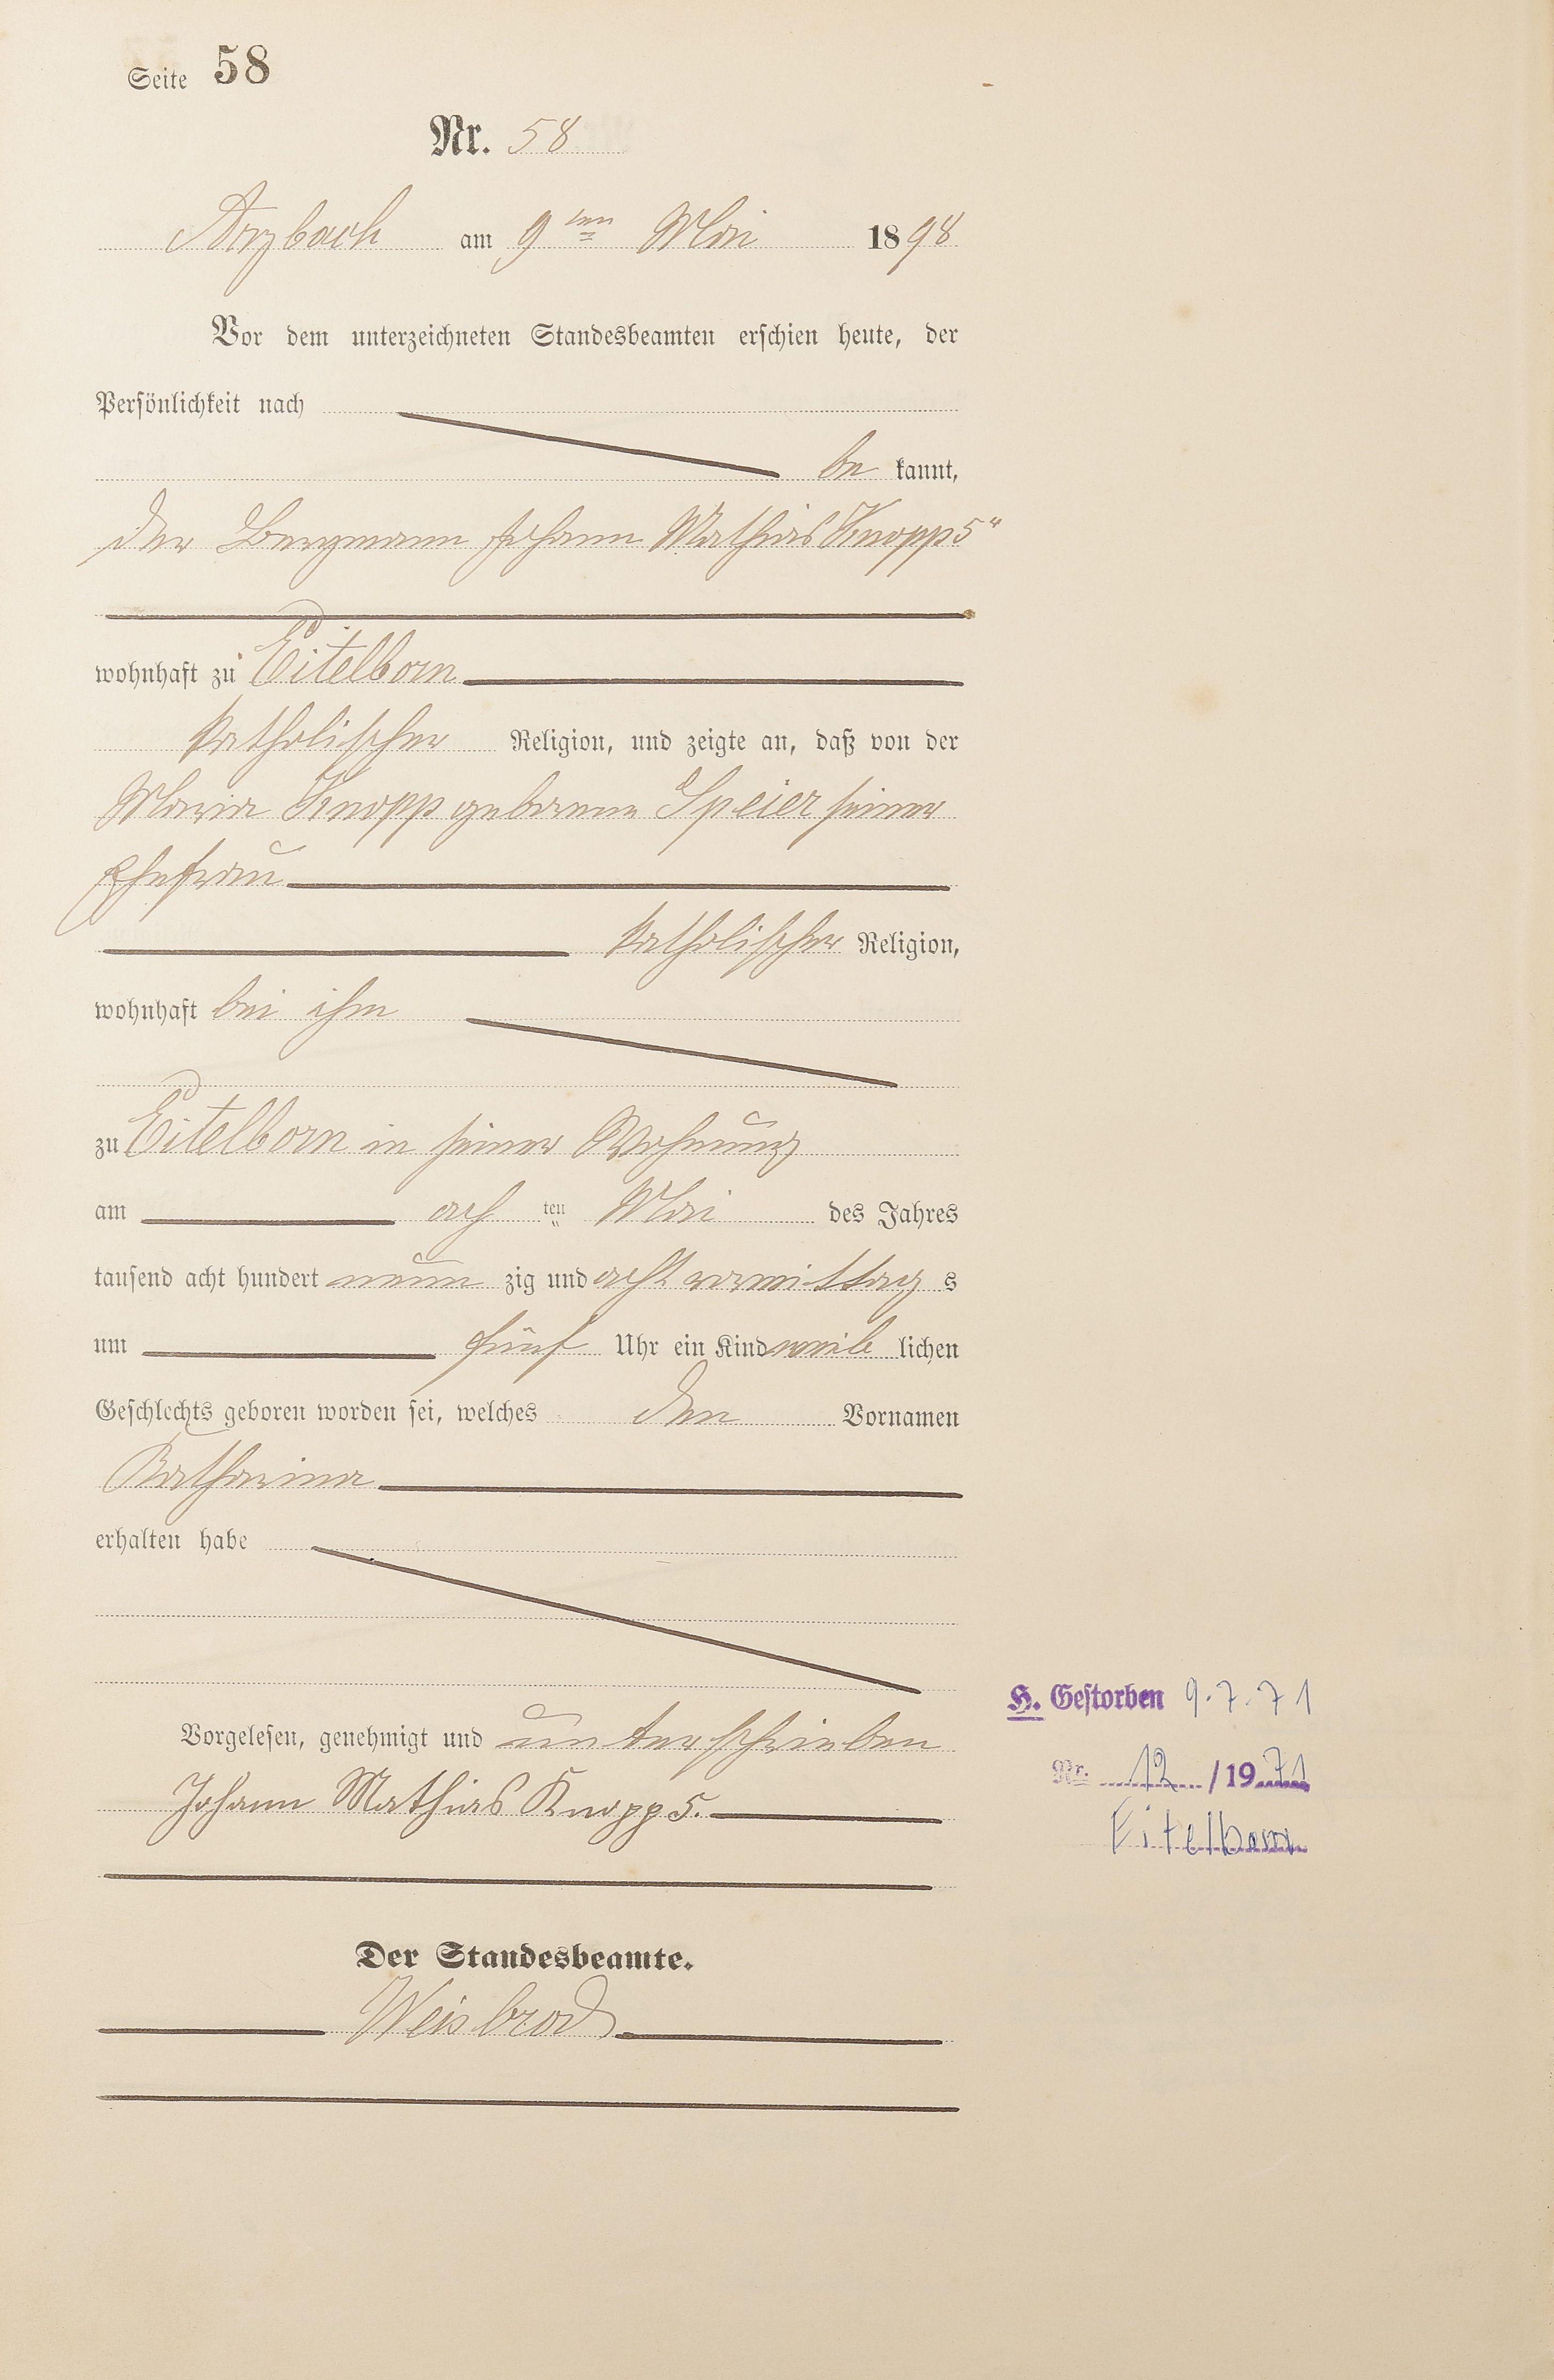 Seite 58
Nr. 58
Arzbach am 9ten Mai 1898
Vor dem unterzeichneten Standesbeamten erschien heute, der
Persönlichkeit nach
be kannt,
der Bergmann Johann Mathias Knopp 5"
wohnhaft zu Eitelborn
katholischer Religion, und zeigte an, daß von der
Maria Knopp geborene Speier seiner
Ehefrau
katholischer Religion,
wohnhaft bei ihm
zu Eitelborn in seiner Wohnung
am ach ten Mai des Jahres
tausend acht hundert neun zig und acht vormittag s
um fünf Uhr ein Kind weib lichen
Geschlechts geboren worden sei, welches den Vornamen
Katharina
erhalten habe
Vorgelesen, genehmigt und unterschrieben
Johann Mathias Knopp 5.
Der Standesbeamte.
Weisbrod
H. Gestorben 9.7.71
Nr. 12/1971
Eitelborn